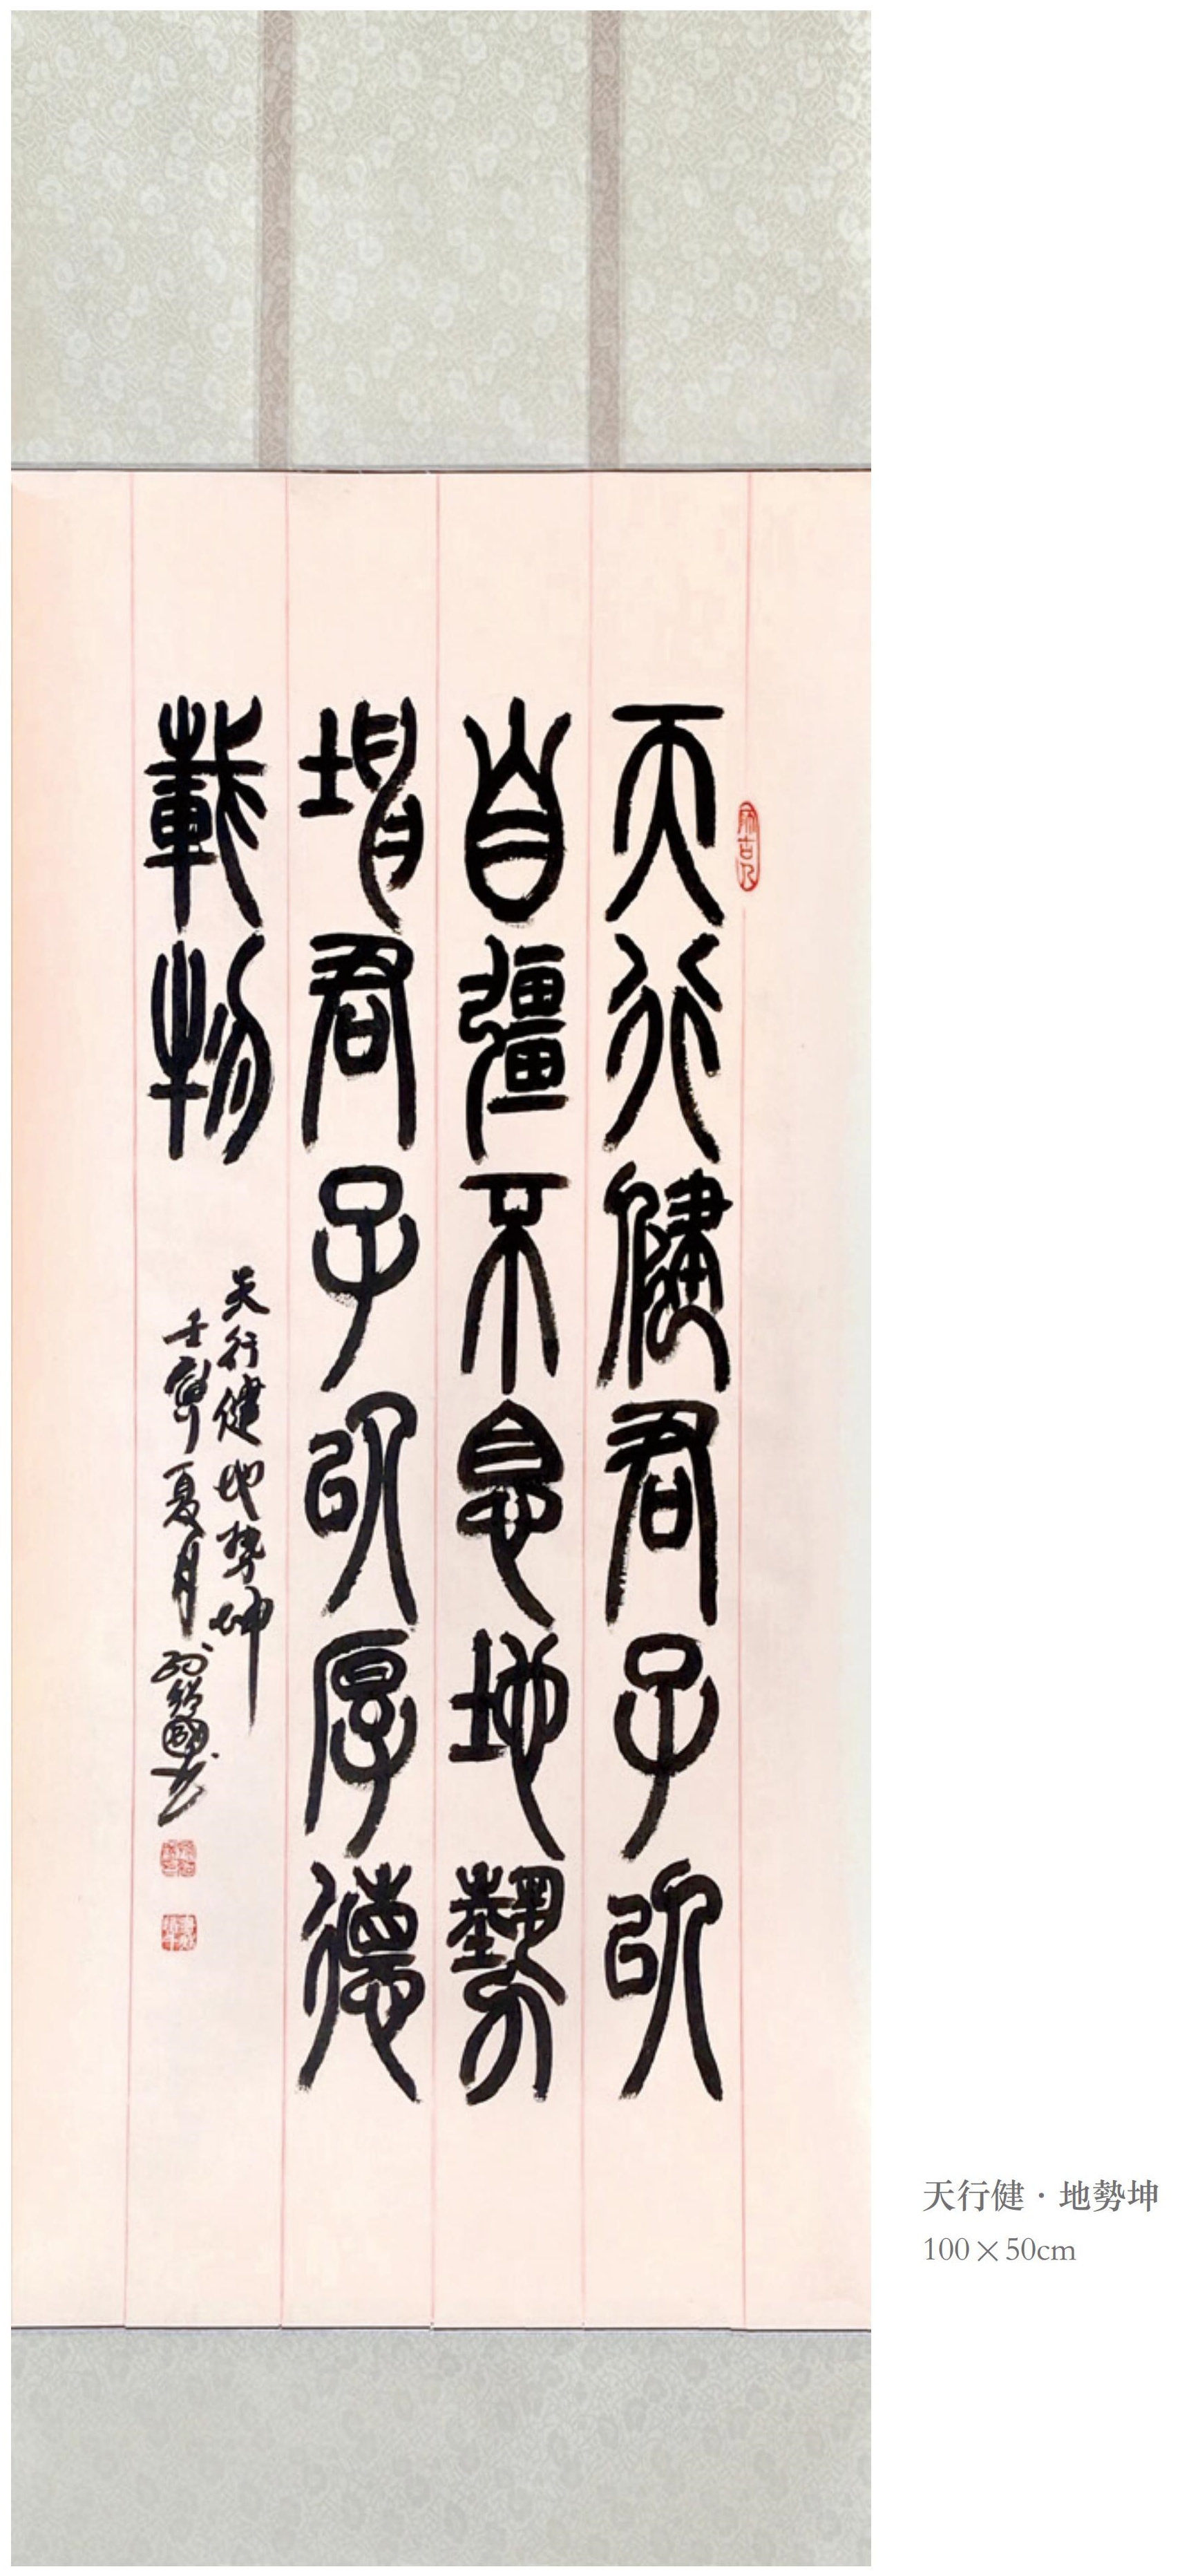 天行健君子以
自彊不息地勢
坤君子以厚德
載物
天行健地势坤
壬寅夏月孙绍國书
天行健·地勢坤
100×50cm